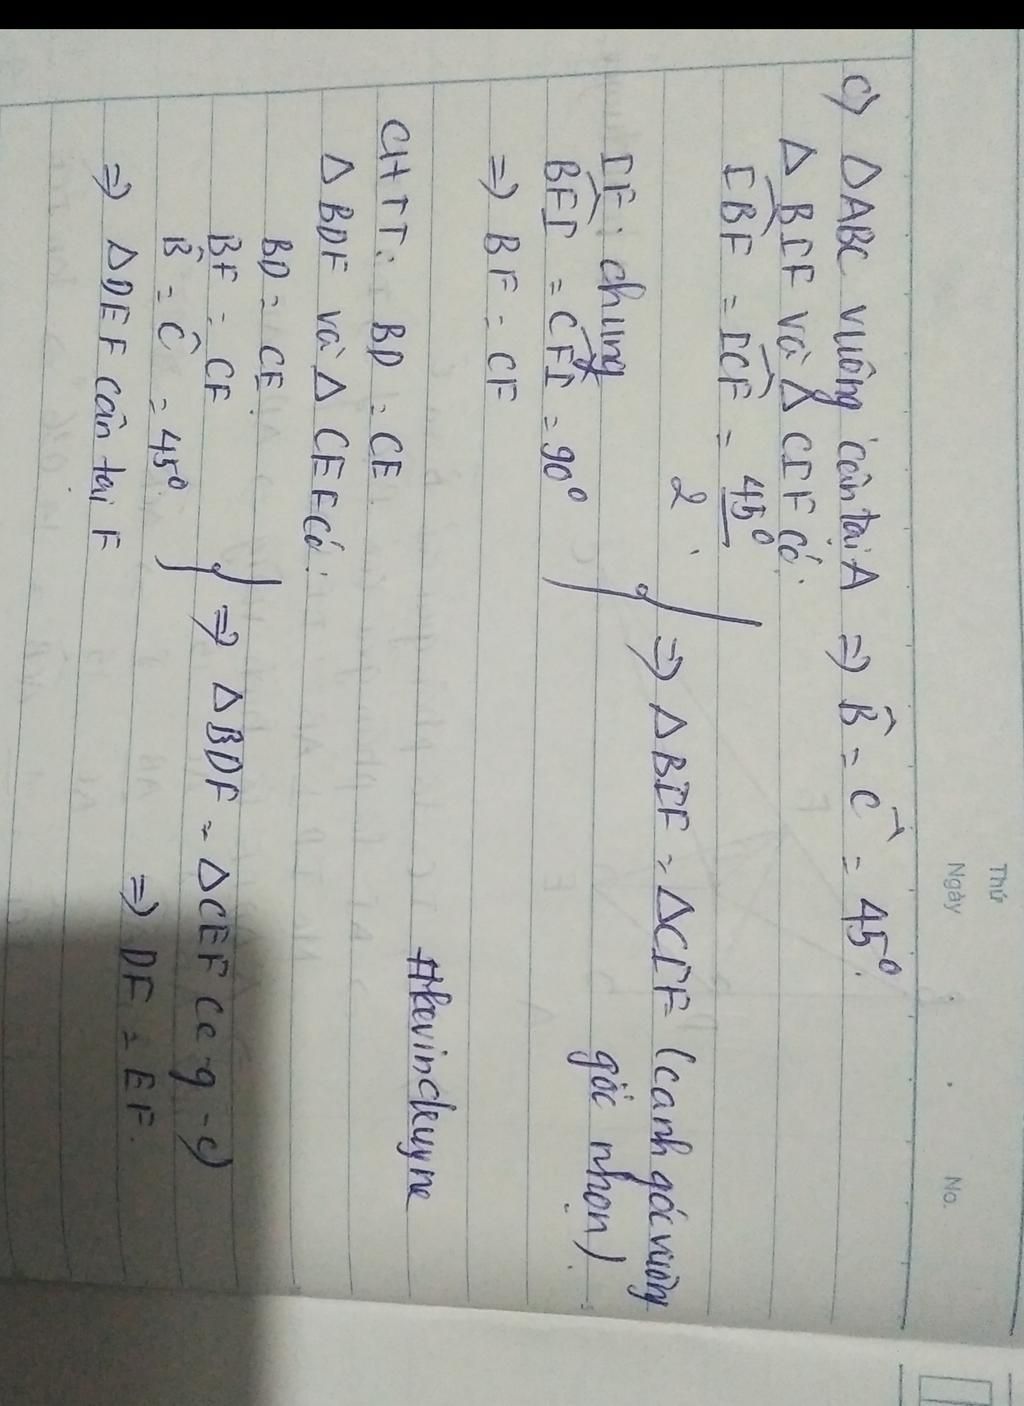 Thứ
Ngày No.
c) ΔABC vuông cân tại A => B̂ = Ĉ = 45°.
Δ BIF và Δ CIF có:
IBF = ICF = 45°/2
IF: chung
BFI = CFI = 90°
=> Δ BIF = ΔCIF (cạnh góc vuông
góc nhọn)
=> BF = CF
#kevincleuyne
CHTT: BD = CE
Δ BDF và Δ CEF có:
BD = CE
BF = CF
B̂ = Ĉ = 45°
=> Δ BDF = ΔCEF (c-g-c)
=> DF = EF.
=> ΔDEF cân tại F